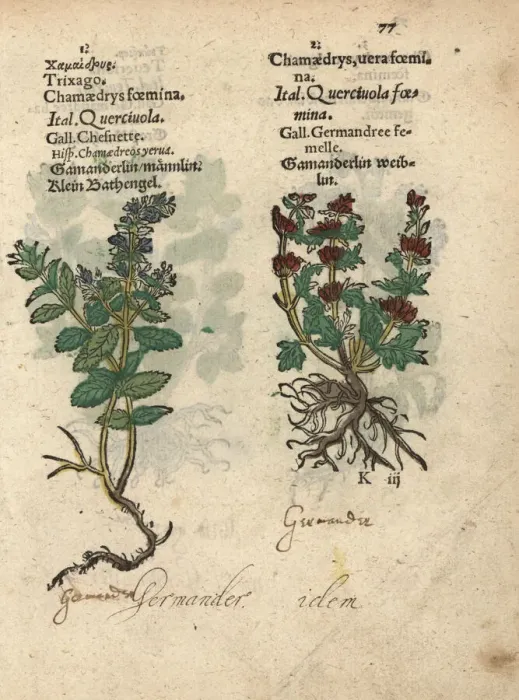 77
1.
Χαμαίδρυς.
Trixago.
Chamædrys fœmina.
Ital. Querciuola.
Gall. Chesnette.
Hisp. Chamædreos yerua.
Gamanderlin/männlin.
Klein Bathengel.
2.
Chamædrys, uera fœmi-
na.
Ital. Querciuola fœ-
mina.
Gall. Germandree fe-
melle.
Gamanderlin weib-
lin.
K iij
Germander
Germander
Germander. idem